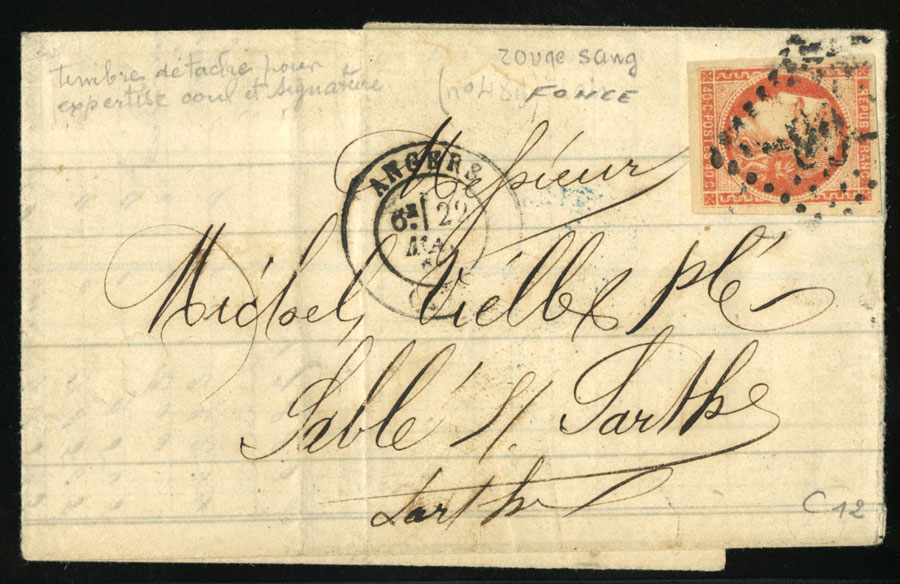 timbres détaché pour
expertise coul et signature
rouge sang
(n°48d) FONCE
40 C. POSTES 40 C.
REPUB FRANC
ANGERS
6E 29
MA
Monsieur
Michel, Vielle plé
Sablé s/. Sarthe
Sarthe
C 12